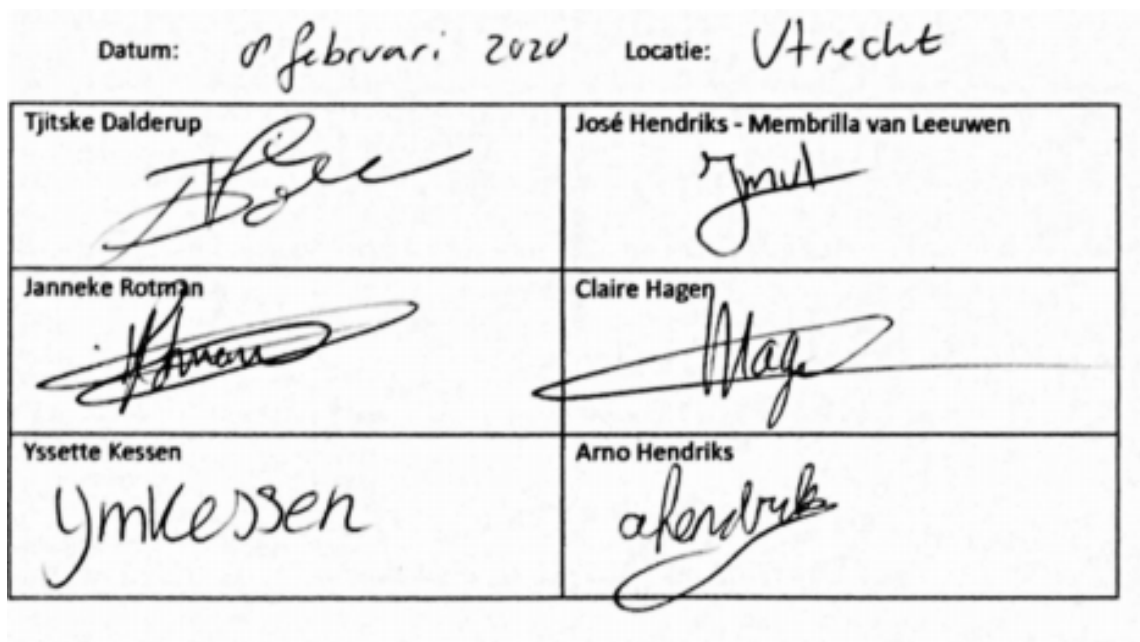 Datum: 8 februari 2020 Locatie: Utrecht
Tjitske Dalderup
José Hendriks - Membrilla van Leeuwen
Janneke Rotman
Claire Hagen
Yssette Kessen
YmKessen
Arno Hendriks
aHendriks